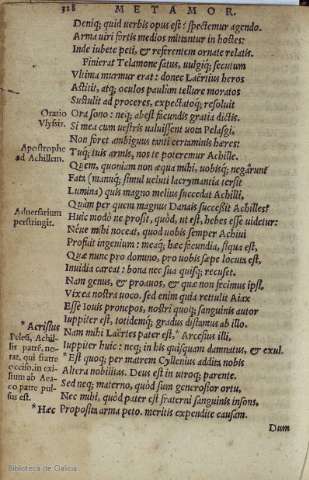 328 METAMOR.
Deniq; quid uerbis opus est? spectemur agendo.
Arma uiri fortis medios mittantur in hostes:
Inde iubete peti, & referentem ornate relatis.
Finierat Telamone satus, uulgiq; secutum
Vltima murmur erat: donec Laërtius heros
Astitit, atq; oculos paulum tellure moratos
Sustulit ad proceres, expectatoq; resoluit
Oratio
Vlyssis.
Ora sono: neq; abest facundis gratia dictis.
Si mea cum uestris ualuissent uota Pelasgi,
Non foret ambiguus tanti certaminis hæres:
Apostrophe
ad Achillem.
Tuq; tuis armis, nos te poteremur Achille.
Quem, quoniam non æqua mihi, uobisq; negârunt
Fata (manuq; simul ueluti lacrymantia tersit
Lumina) quis magno melius succedat Achilli,
Quàm per quem magnus Danais successit Achilles?
Aduersarium
perstringit.
Huic modò ne prosit, quòd, ut est, hebes esse uidetur:
Néue mihi noceat, quòd uobis semper Achiui
Profuit ingenium: meaq; hæc facundia, siqua est,
Quæ nunc pro domino, pro uobis sæpe locuta est,
Inuidia careat: bona nec sua quisq; recuset.
Nam genus, & proauos, & quæ non fecimus ipsi,
Vix ea nostra uoco. sed enim quia retulit Aiax
Esse Iouis pronepos, nostri quoq; sanguinis autor
Iuppiter est, totidemq; gradus distamus ab illo.
* Acrisius
Pelei, Achil-
lis patrē, ne-
rat, qui fratre
occiso, in exi
lium ab Aea-
co patre pul-
sus est.
Nam mihi Laërtes pater est, * Arcesius illi,
Iuppiter huic: neq; in his quisquam damnatus, & exul.
* Est quoq; per matrem Cyllenius addita nobis
Altera nobilitas. Deus est in utroq; parente.
Sed neq; materno, quòd sum generosior ortu,
Nec mihi, quòd pater est fraterni sanguinis insons,
* Hæc Proposita arma peto. meritis expendite causam.
Dum
Biblioteca de Galicia